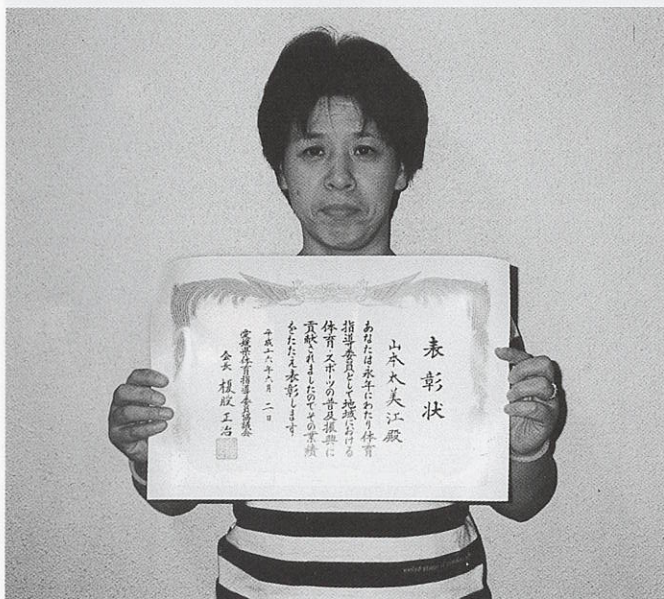 表彰状
山本太美江殿
あなたは永年にわたり体育
指導委員として地域における
体育・スポーツの普及振興に
貢献されましたのでその業績
をたたえ表彰します
平成十六年六月二日
愛媛県体育指導委員協議会
会長 正治